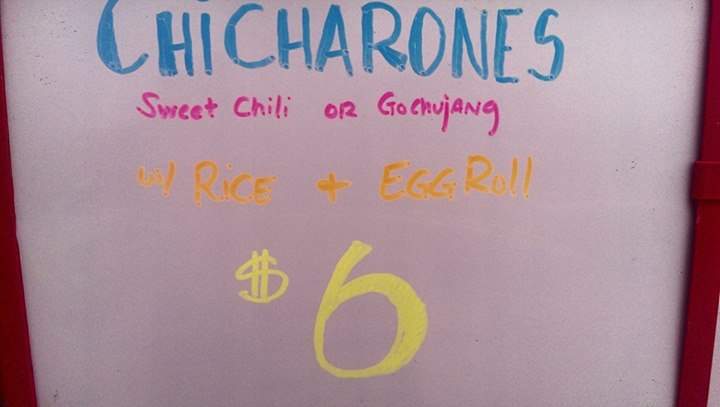 CHiCHARONES
Sweet Chili OR GochujANg
w/ RiCE + EGG Roll
$6